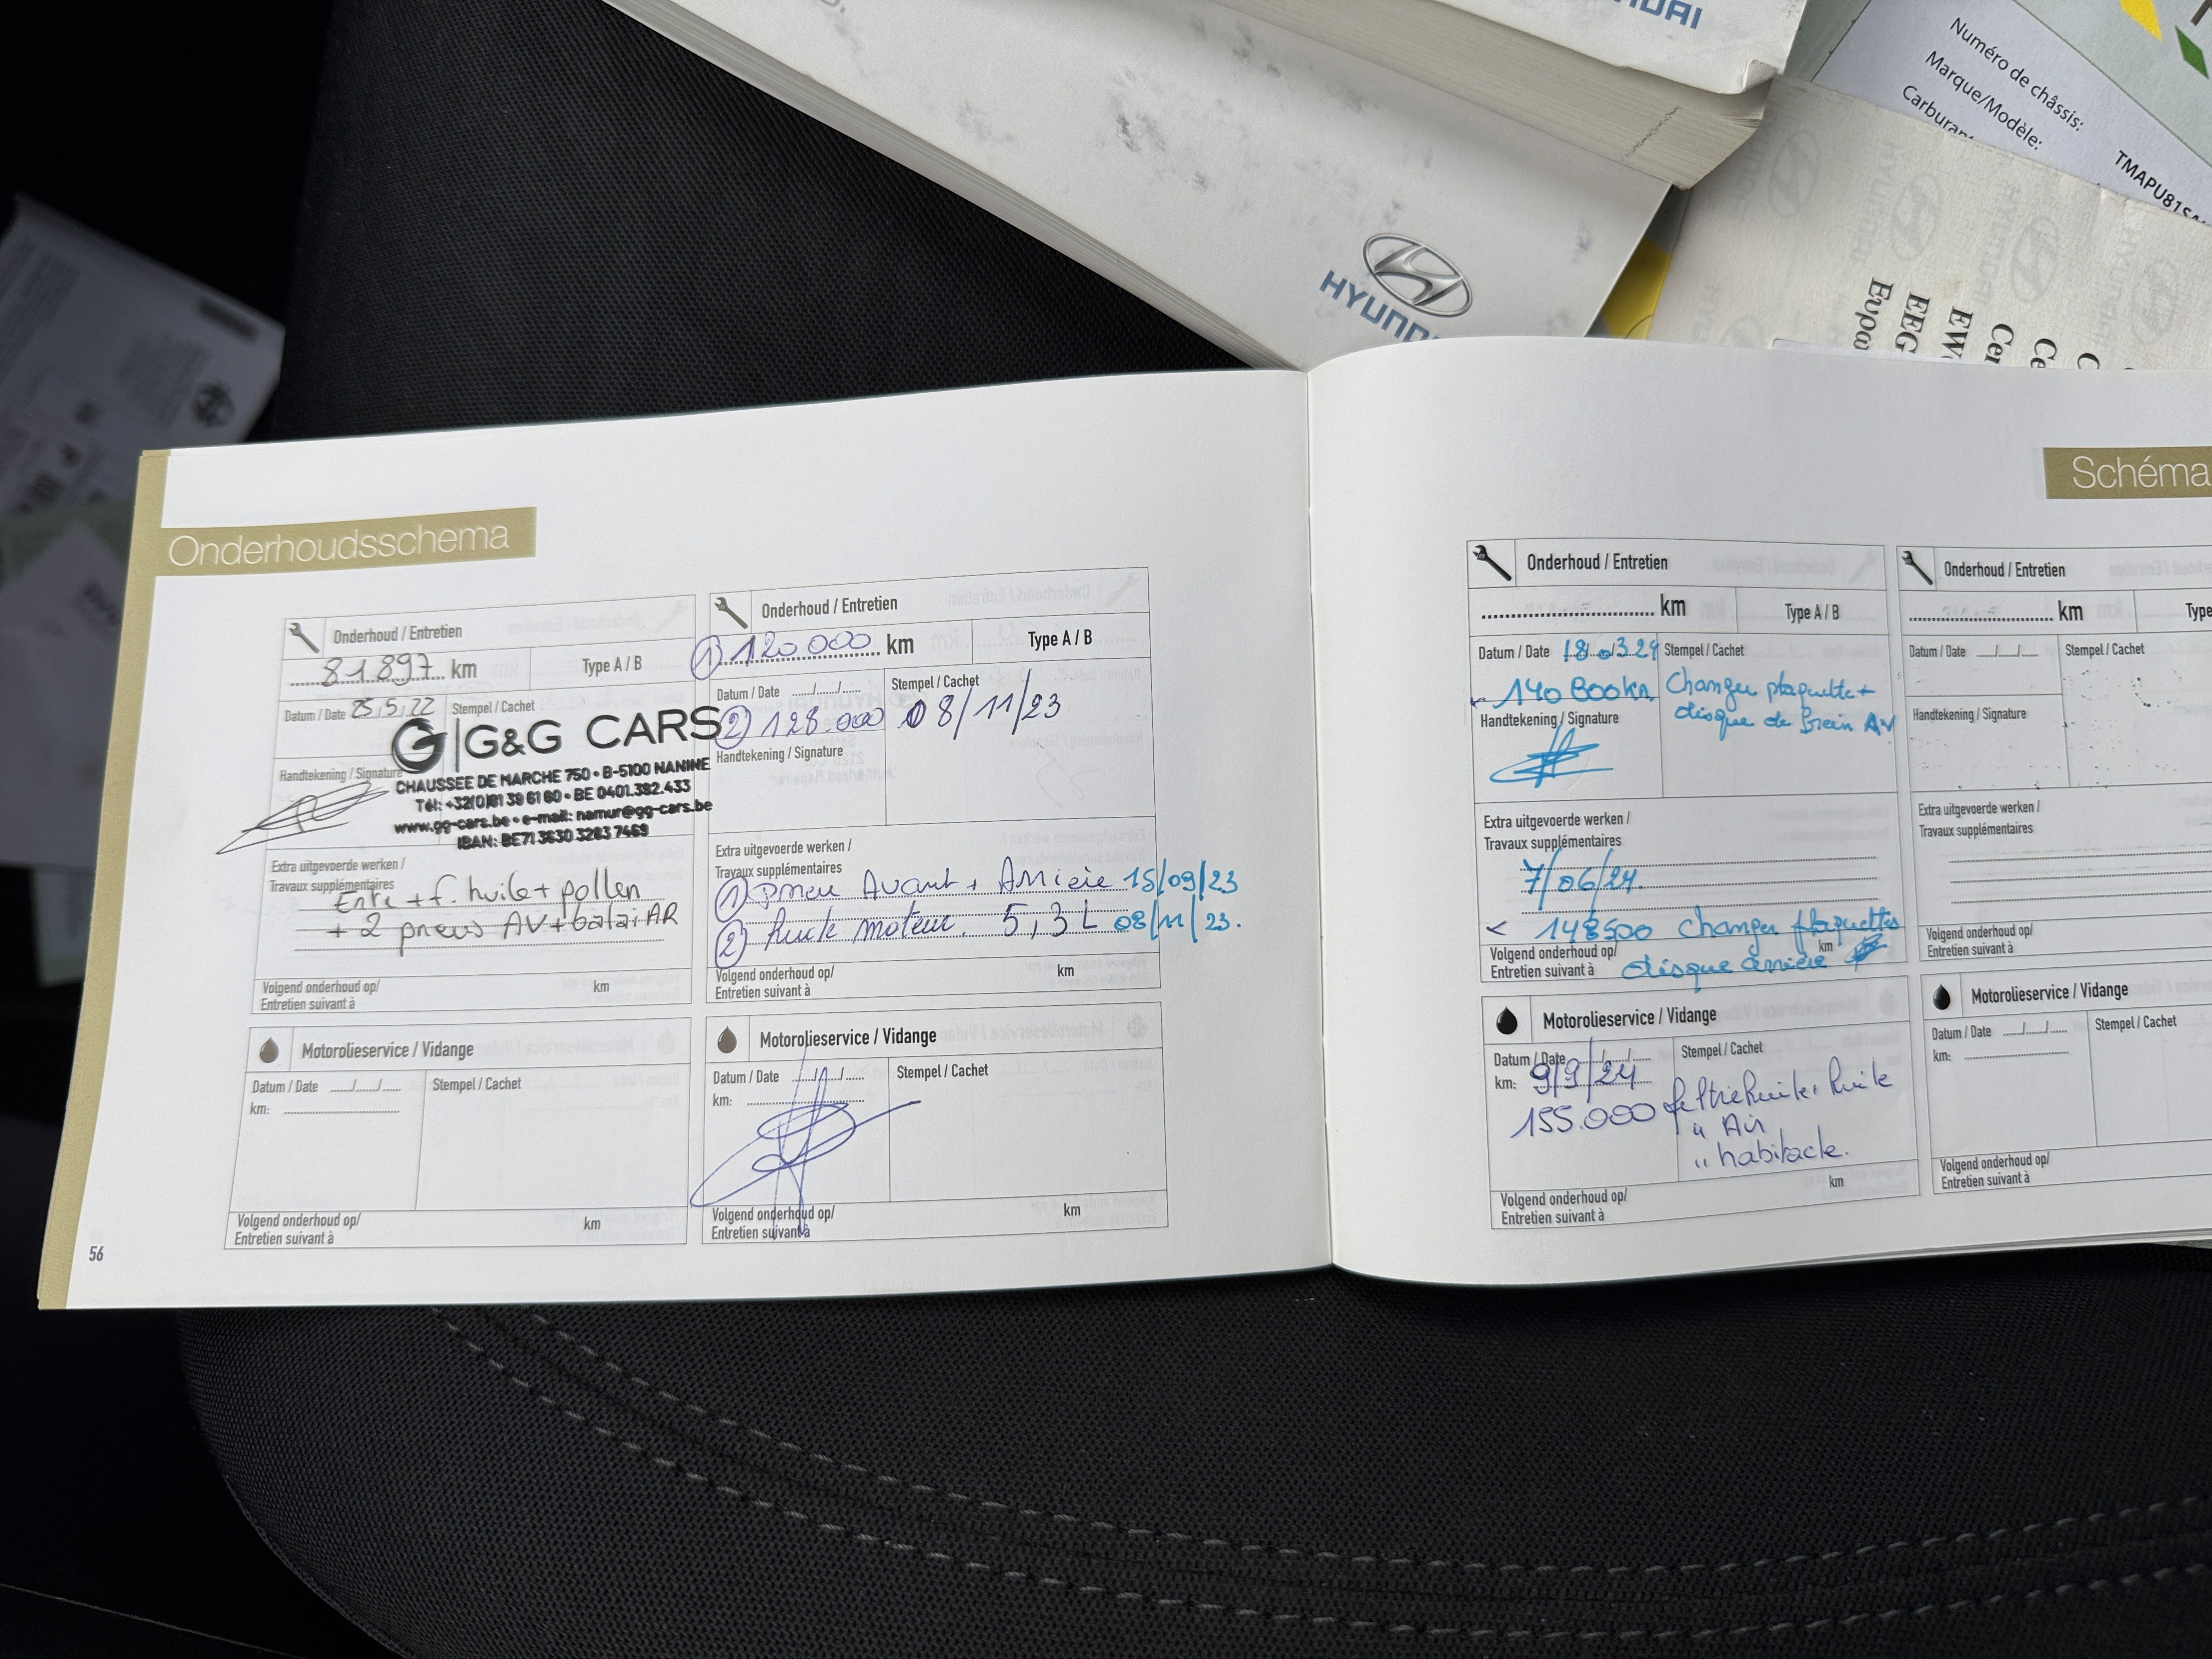 HYUNDAI
HYUNDAI
Numéro de châssis:
Marque/Modèle:
TMAPU81S
Schéma
Onderhoudsschema
Onderhoud / Entretien
81.897 km
Type A / B
Datum / Date 25/5/22
Stempel / Cachet
G&G CARS
CHAUSSEE DE MARCHE 750 • B-5100 NANINE
Tél: +32(0)81 39 61 60 • BE 0401.382.433
www.gg-cars.be • e-mail: namur@gg-cars.be
IBAN: BE71 3630 3283 7469
Handtekening / Signature
Extra uitgevoerde werken /
Travaux supplémentaires
Entr + f. huile + pollen
+ 2 pneus AV + balai AR
Volgend onderhoud op/
Entretien suivant à
km
Motorolieservice / Vidange
Datum / Date ...../...../.....
Stempel / Cachet
km:
Volgend onderhoud op/
Entretien suivant à
km
56
Onderhoud / Entretien
① 120 000 km
Type A / B
Datum / Date ...../...../.....
Stempel / Cachet
② 128.000 08/11/23
Handtekening / Signature
Extra uitgevoerde werken /
Travaux supplémentaires
① pneu Avant + Arrière 15/09/23
② huile moteur. 5,3 L 08/11/23.
Volgend onderhoud op/
Entretien suivant à
km
Motorolieservice / Vidange
Datum / Date ...../...../.....
Stempel / Cachet
km:
Volgend onderhoud op/
Entretien suivant à
km
Onderhoud / Entretien
km
Type A / B
Datum / Date
Stempel / Cachet
140 800 km
Changer plaquette +
disque de frein AV
Handtekening / Signature
Extra uitgevoerde werken /
Travaux supplémentaires
7/06/24.
< 148500 Changer plaquettes
km
Volgend onderhoud op/
Entretien suivant à
disque arrière
Motorolieservice / Vidange
Datum / Date
Stempel / Cachet
km: 9/9/24
155.000 huile
" Air
" habitacle.
Volgend onderhoud op/
Entretien suivant à
km
Onderhoud / Entretien
km
Datum / Date ...../...../.....
Stempel / Cachet
Handtekening / Signature
Extra uitgevoerde werken /
Travaux supplémentaires
Volgend onderhoud op/
Entretien suivant à
Motorolieservice / Vidange
Datum / Date ...../...../.....
Stempel / Cachet
km:
Volgend onderhoud op/
Entretien suivant à